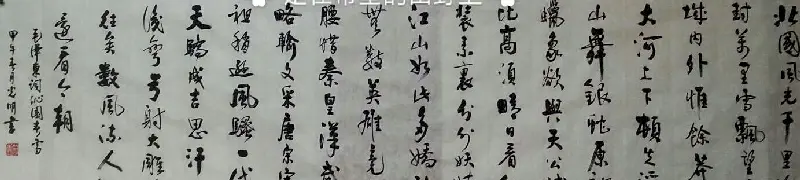 北國風光千里
封萬里雪飄望
城內外惟餘莽
大河上下頓失滔
山舞銀蛇原
蠟象欲與天公試
比高須晴日看
裝素裹分外妖
江山如此多嬌
無數英雄競
腰惜秦皇漢武
略輸文采唐宗宋
祖稍遜風騷一代
天驕成吉思汗
識彎弓射大雕
往矣數風流人
還看今朝
毛澤東詞沁園春雪
甲午年月明書